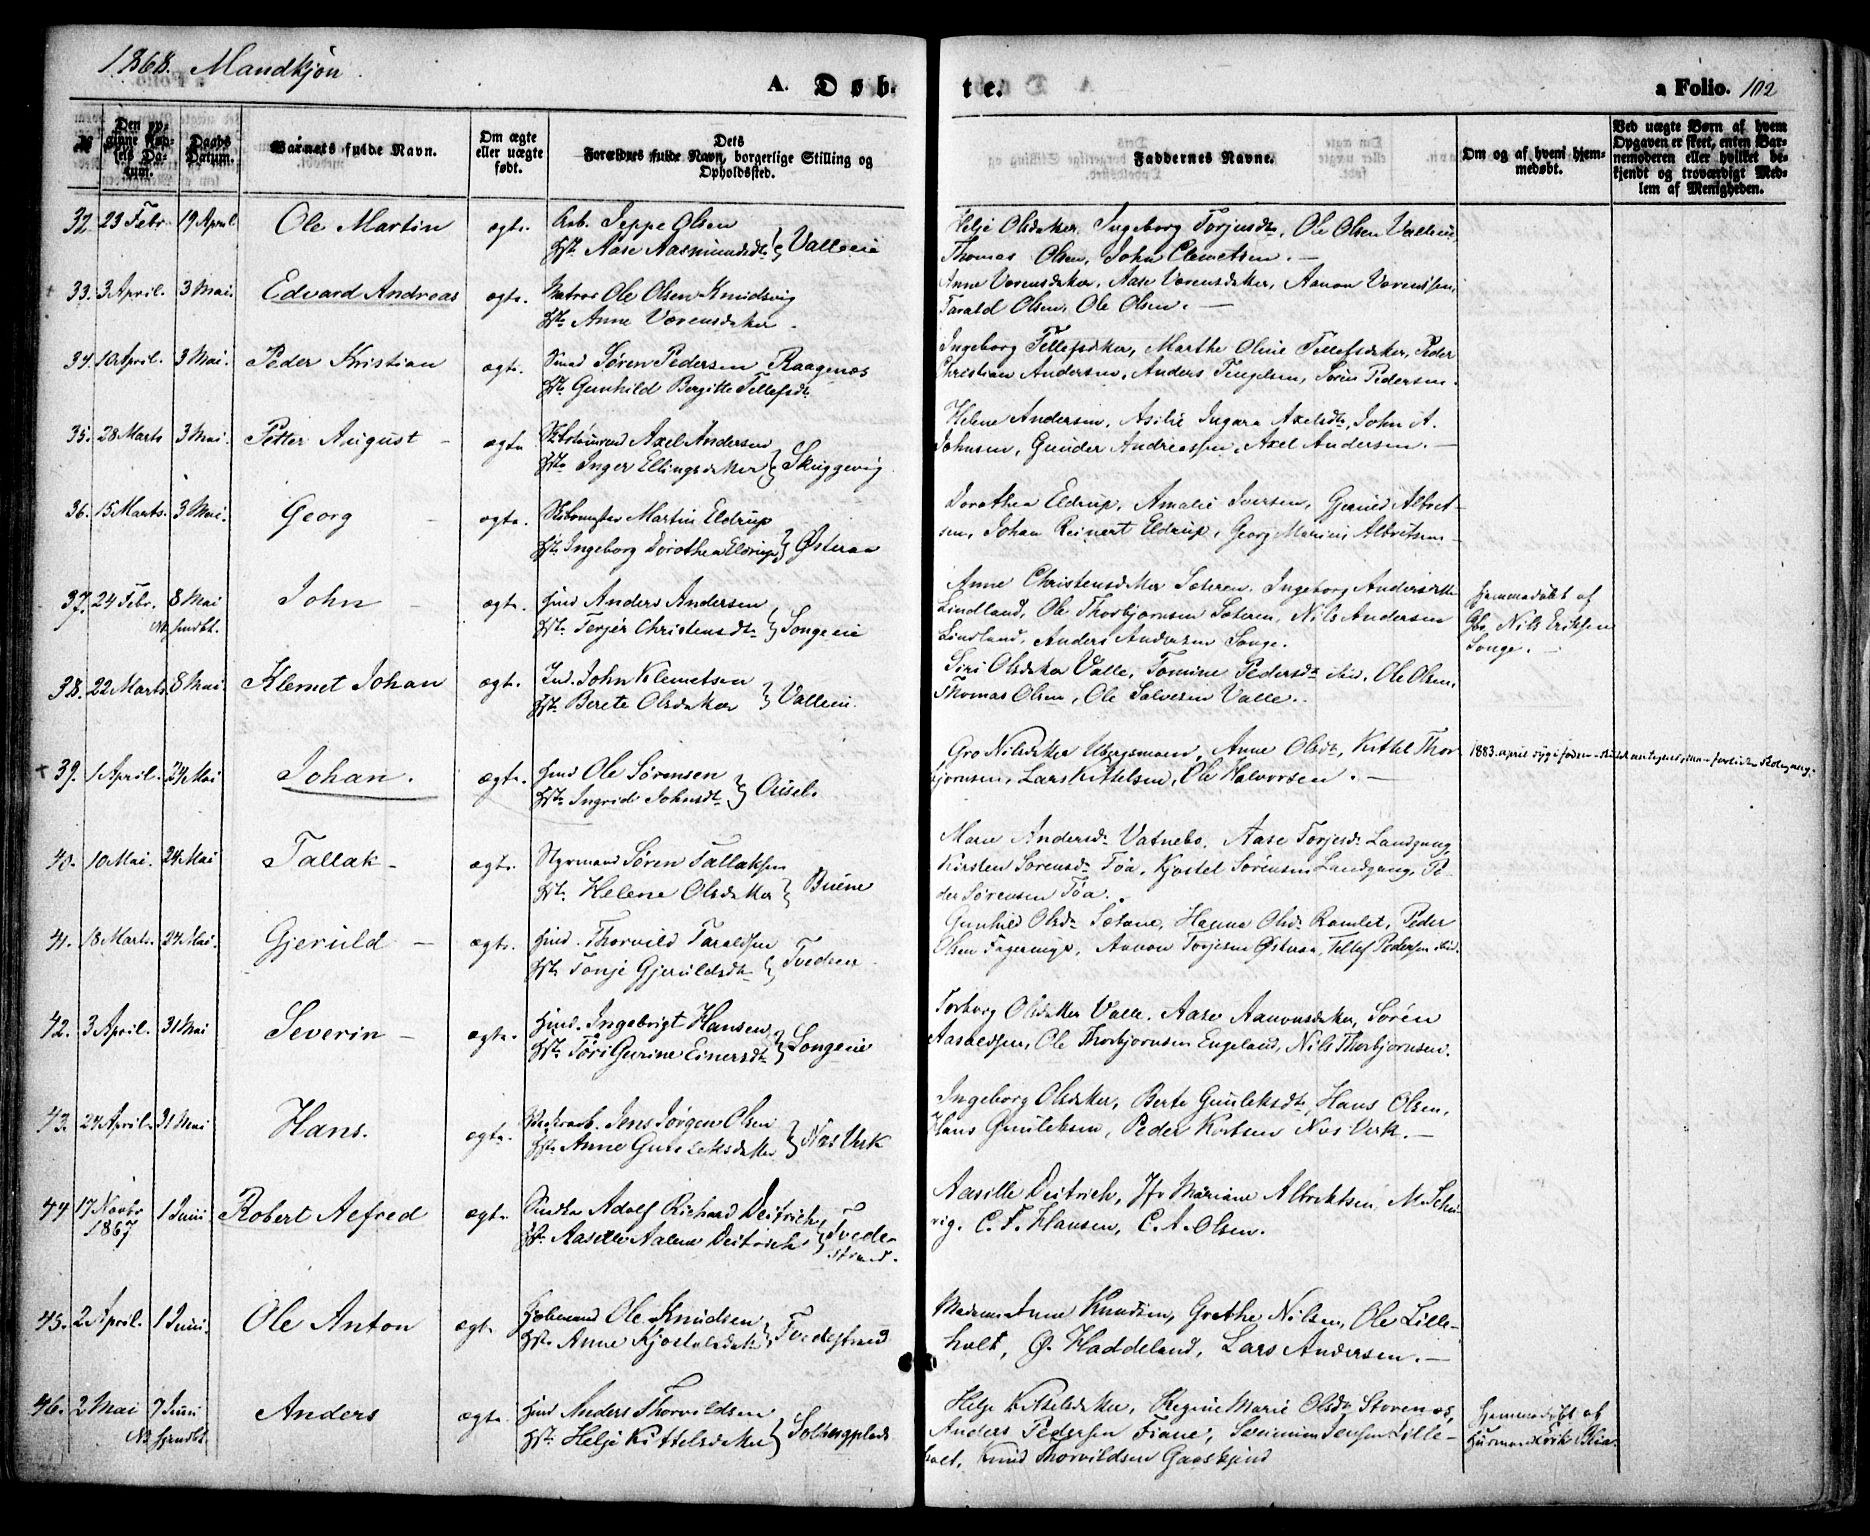 1868. Mandkjøn.
A. Døbte.
a Folio. 102
№
Den opgivne Fødsels Datum.
Daabs Datum.
Barnets fulde Navn.
Om ægte eller uægte født.
Dets Forældres fulde Navn, borgerlige Stilling og Opholdssted.
Faddernes Navne.
Om og af hvem hjemmedøbt.
Ved uægte Børn af hvem Opgaven er skeet, enten Barnemoderen eller hvilket bekjendt og troværdigt Medlem af Menigheden.
32. 23 Febr. 19 April Ole Martin ægte. Arb. Jeppe Olsen
Hst. Aase Aasmundsdt. } Valleeie
Helje Olsdatter, Ingeborg Torjusdt., Ole Olsen Valleeie,
Thomas Olsen, John Clemetsen. —
33. 3 April. 3 Mai. Edvard Andreas ægte. Matros Ole Olsen Knudsvig
Hst. Anne Værensdatter.
AnneVærensdatter, Aase Værensdatter, Aanon Værenssen,
Tarald Olsen, Ole Olsen. —
34. 10 April. 3 Mai. Peder Kristian ægte. Smed Søren Pedersen Raagenæs
Hst. Gunhild Bergitte Tellefsdt.
Ingeborg Tellefsdatter, Marthe Oline Tellefsdatter, Peder
Christian Andersen, Anders Tengelsen, Søren Pedersen.
35. 28 Marts 3 Mai. Petter August — ægte Axel Andersen
Hst. Inger Ellingsdatter } Skuggevig
Helene Andersen, Asilie Ingara Axelsdt., John A.
Johnsen, Gunder Andreassen, Axel Andersen. —
36. 15 Marts. 3 Mai. Georg — ægte. Martin Eldrup
Hst. Ingeborg Dorothea Eldrup } Østeraa
Dorothea Eldrup, Amalie Iversen, Gjeruld Albret-
sen, Johan Reinert Eldrup, Georg Marius Albretsen —
37. 24 Febr. 8 Mai John — ægte. Hmd Anders Andersen
Hst. Terjer Christensdt. } Songeeie
Anne Christensdatter Sæteren, Ingeborg Andersdatter
Lindland, Ole Thorbjørnsen Sæteren, Nils Andersen
Lindland, Anders Andersen Songe.
Hjemmedøbt af
Gbr. Nils Eriksen
Songe. —
38. 22 Marts 8 Mai. Klemet Johan ægte. Ind. John Klemetsen
Hst. Berete Olsdatter } Valleeie.
Siri Olsdatter Valle, Tomine Pedersdt. ibid, Ole Olsen,
Thomas Olsen, Ole Salvesen Valle.
39. 1 April. 24 Mai Johan. ægte. Hmd Ole Sørensen
Hst. Ingrid Johnsdt. }
Gro Nilsdatter Ubergsmoen, Anne Olsdt., Kittel Thor-
bjørnsen, Lars Kittelsen, Ole Halvorsen. —
40. 10 Mai. 24 Mai Tallak — ægte. Styrmand Søren Tallaksen
Hst. Helene Olsdatter } Buene
Maren Andersdt. Vatnebo, Aase Torjesdt. Landgang,
Kirsten Sørensdt. Tøa, Kjøstel Sørensen Landgang, Pe-
der Sørensen Tøa.
41. 18 Marts. 24 Mai. Gjeruld — ægte. Hmd. Thorvild Taraldsen
Hst. Tonje Gjeruldsdt. } Tvedsen
Gunhild Olsdt. Sætane, Hanna Olsdt. Ramlet, Peder
Olsen Fagermyr, Aanon Torjesen Østeraa, Tellef Pedersen ibid.
42. 3 April. 31 Mai Severin — ægte. Hmd. Ingebrigt Hansen
Hst. Tøri Gurine Einersdt. } Songeeie
Torborg Olsdatter Valle, Aase Aanonsdatter, Søren
Aasvoldsen, Ole Thorbjørnsen Engeland, Nils Thorbjørnsen.
43. 24 April. 31 Mai Hans. ægte. Jens Jørgen Olsen
Hst. Anne Gunleksdatter } Næs Verk
Ingeborg Olsdatter, Berte Gunleksdt., Hans Olsen,
Hans Gunleksen, Peder Knutsen Næs Verk. —
44 17 Novbr 1867 1 Juni Robert Alfred ægte. Snedker Adolf Richard Deitrich
Hst. Aasille Aalene Deitrich } Tvede-
strand.
Aasille Deitrich, Jfr Mariane Albrektsen, M. Schu-
vig, C. F. Hansen, C. A. Olsen.
45. 2 April. 1 Juni. Ole Anton ægte. Ole Knudsen
Hst. Anne Kjøstelsdatter } Tvedestrand
Madam Anne Knudsen, Grethe Nilsen, Ole Lille-
holt, Ø. Haddeland, Lars Andersen. —
46. 2 Mai 7 Juni Anders ægte. Hmd Anders Thorvildsen
Hst. Helje Kittelsdatter } Solbergplads
Helje Kittelsdatter, Regine Marie Olsdt. Stovenæs,
Anders Pedersen Fiane, Jensen Lille-
holt, Knud Thorvildsen
Hjemmedøbt af